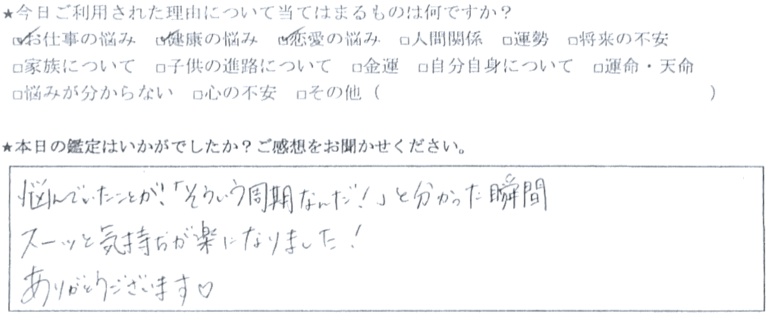 ★今日ご利用された理由について当てはまるものは何ですか？
☑お仕事の悩み ☑健康の悩み ☑恋愛の悩み □人間関係 □運勢 □将来の不安
□家族について □子供の進路について □金運 □自分自身について □運命・天命
□悩みが分からない □心の不安 □その他（ ）
★本日の鑑定はいかがでしたか？ご感想をお聞かせください。
悩んでいたことが、「そういう周期なんだ！」と分かった瞬間
スーッと気持ちが楽になりました！
ありがとうございます♡